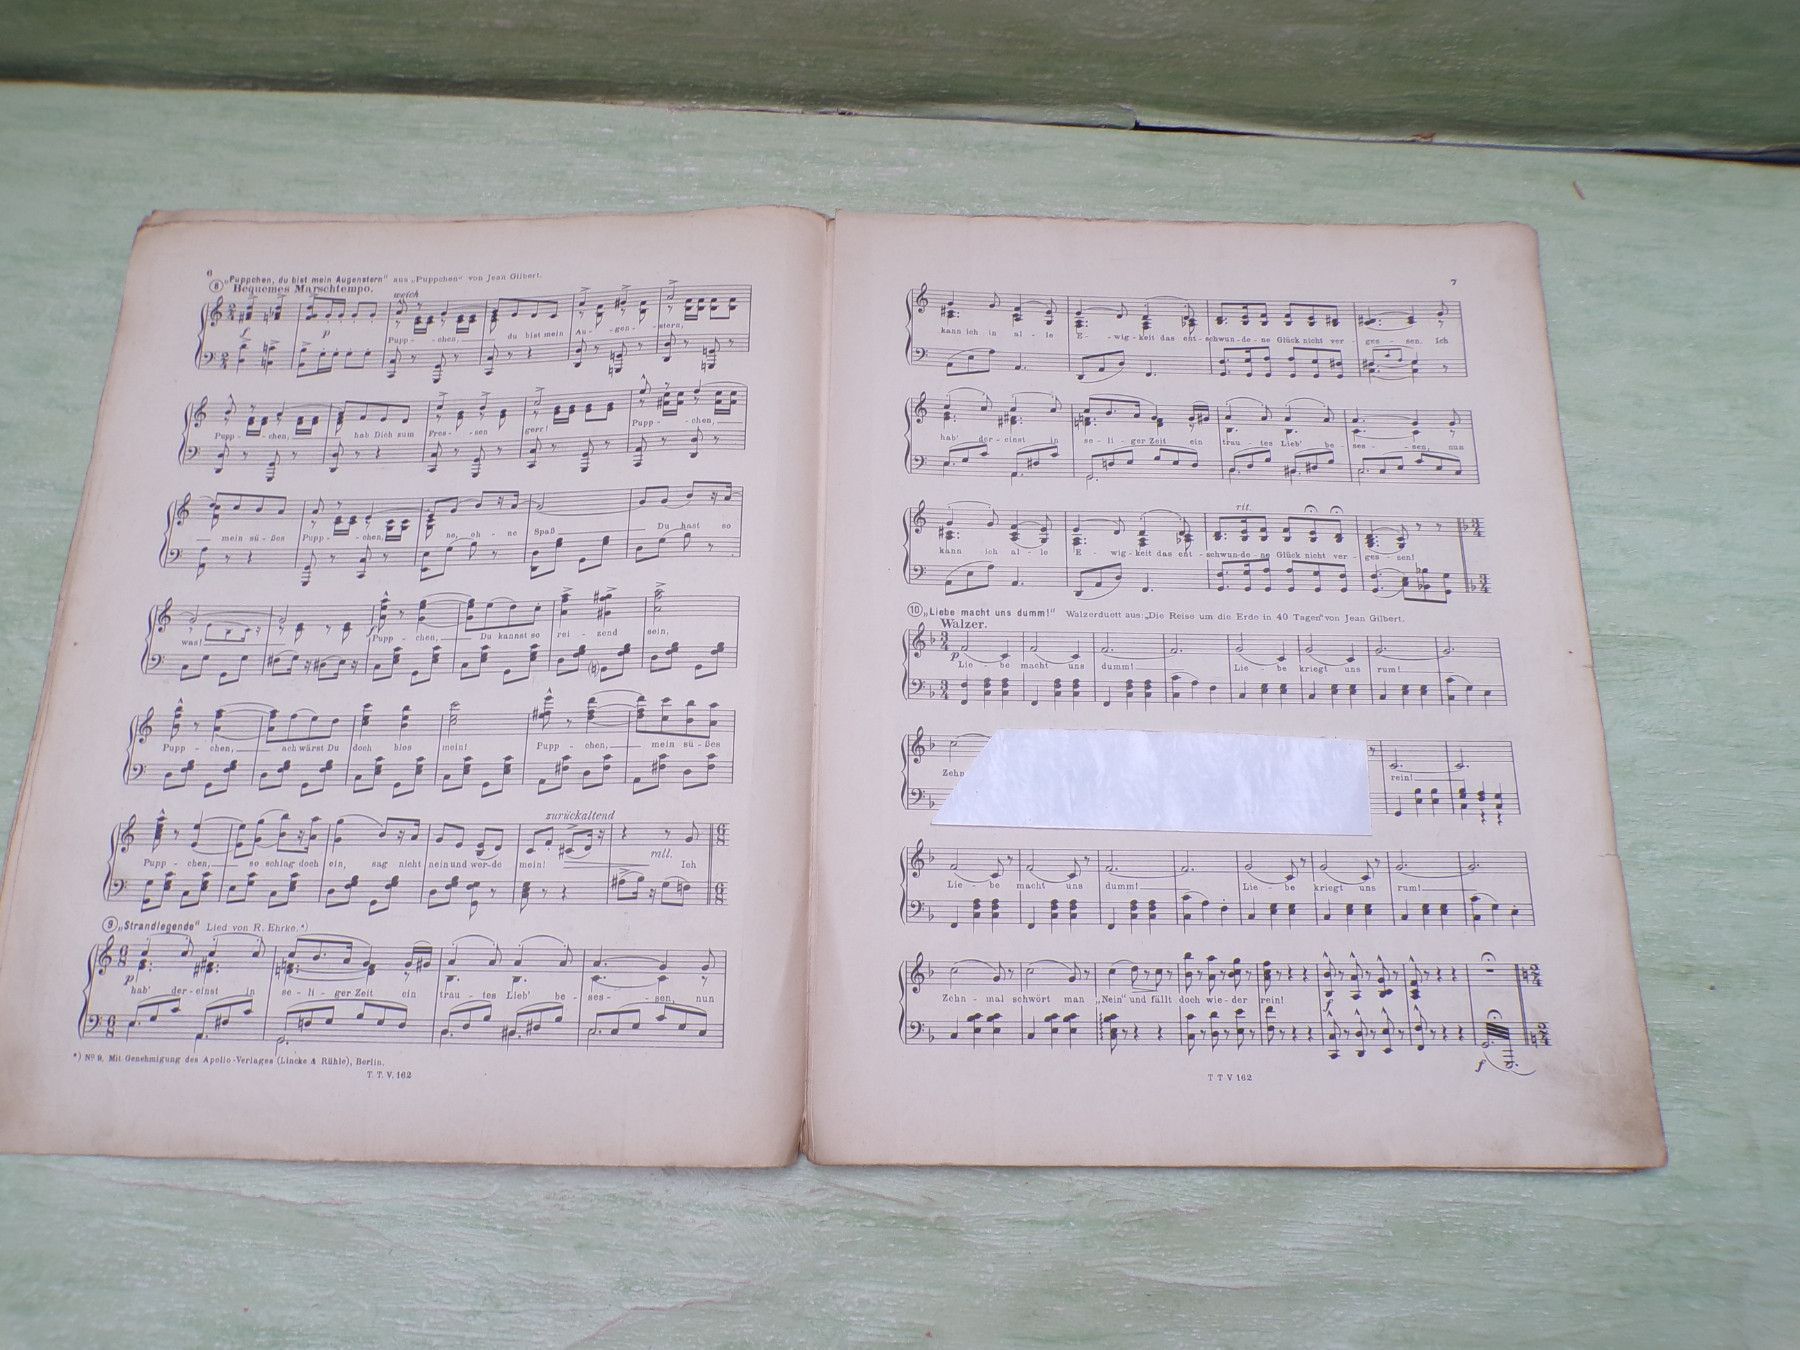 6
„Puppchen, du bist mein Augenstern" aus „Puppchen" von Jean Gilbert.
8 Bequemes Marschtempo.
weich
f p
Pupp - - chen, du bist mein Au - - gen - - stern,
Pupp - - chen, hab Dich zum Fres - - sen gern! Pupp - - chen,
mein sü - ßes Pupp - - chen, ne, oh - ne Spaß Du hast so
was! f Pupp - - chen, Du kannst so rei - zend sein,
Pupp - chen, ach wärst Du doch blos mein! Pupp - chen, mein sü - ßes
zurückaltend
rall.
Pupp - - chen, so schlag doch ein, sag nicht nein und wer - de mein! Ich
9 „Strandlegende" Lied von R. Ehrke.*)
p
hab' der - einst in se - li - ger Zeit ein trau - tes Lieb' be - ses - - sen, nun
*) Nº 9. Mit Genehmigung des Apollo-Verlages (Lincke & Rühle), Berlin.
T. T. V. 162
7
kann ich in al - le E - wig - keit das ent - schwun - de - ne Glück nicht ver - ges - sen. Ich
hab' der - einst in se - li - ger Zeit ein trau - tes Lieb' be - ses - sen, nun
rit.
kann ich al - le E - wig - keit das ent - schwun - de - ne Glück nicht ver - ges - sen!
10 „Liebe macht uns dumm!" Walzerduett aus: „Die Reise um die Erde in 40 Tagen" von Jean Gilbert.
Walzer.
p
Lie - be macht uns dumm! Lie - be kriegt uns rum!
Zehn rein!
Lie - be macht uns dumm! Lie - be kriegt uns rum!
Zehn - mal schwört man „Nein" und fällt doch wie - der rein! f
f
T T V 162